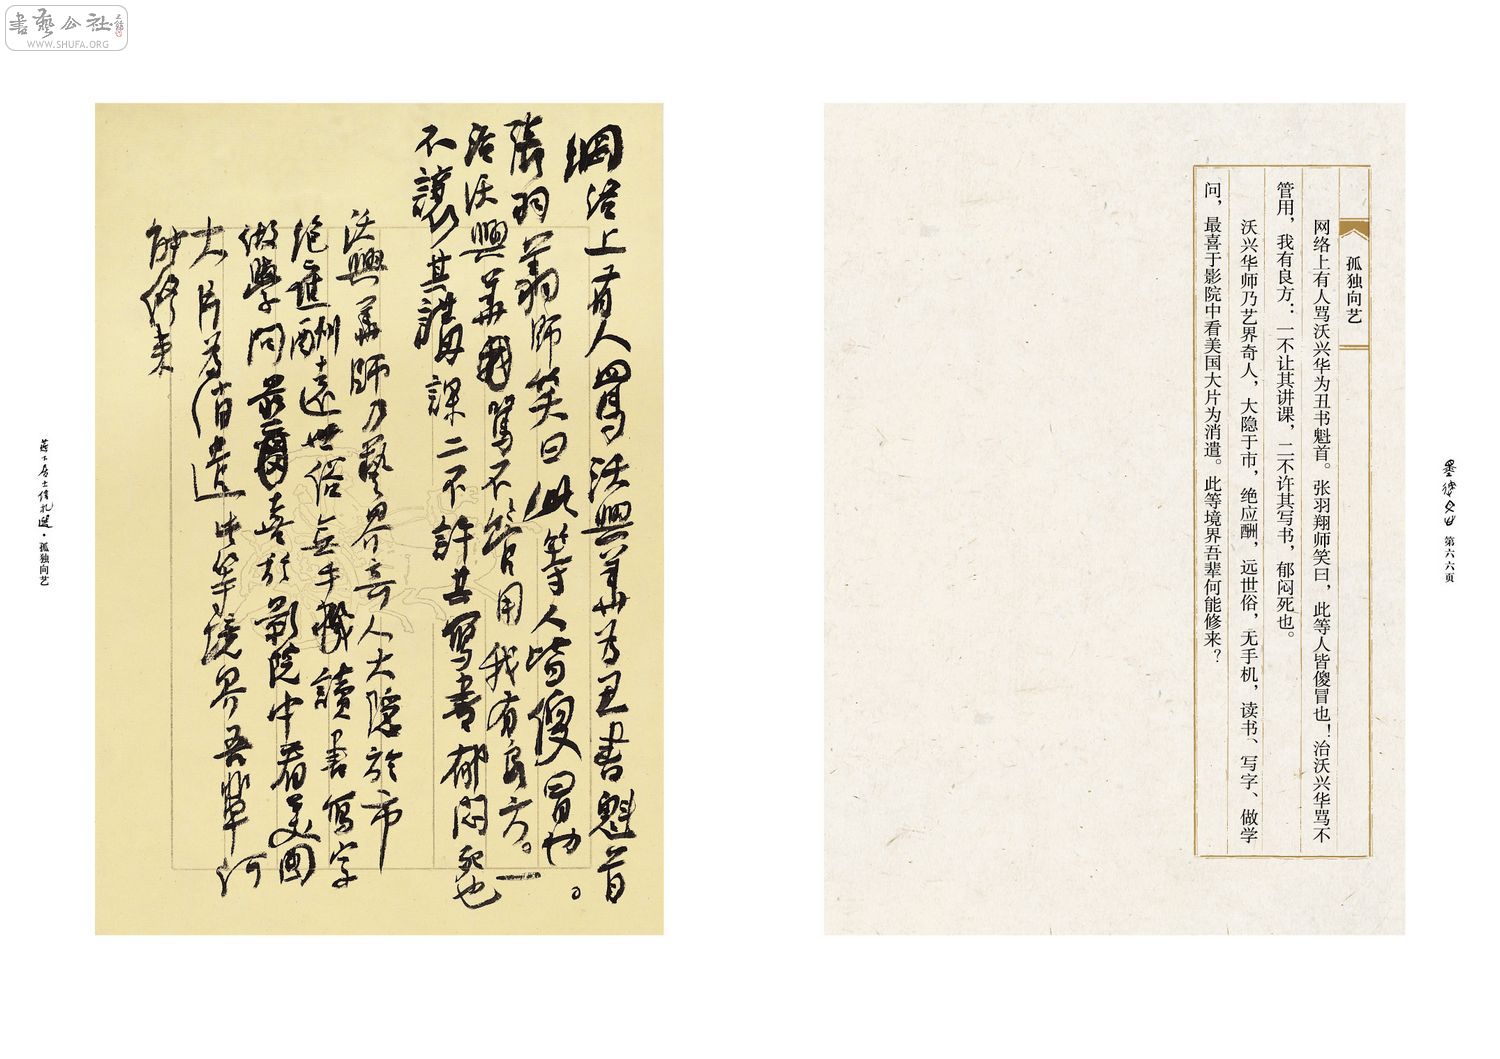 書藝公社
WWW.SHUFA.ORG
第六六页
孤独向艺
网络上有人骂沃兴华为丑书魁首。张羽翔师笑曰，此等人皆傻冒也！治沃兴华骂不
管用，我有良方：一不让其讲课，二不许其写书，郁闷死也。
沃兴华师乃艺界奇人，大隐于市，绝应酬，远世俗，无手机，读书、写字、做学
问，最喜于影院中看美国大片为消遣。此等境界吾辈何能修来？
網洛上有人罵沃興華為丑書魁首
張羽翔師笑曰此等人皆傻冒也。
治沃興華罵不管用我有良方。一
不讓其講課二不許其寫書郁悶死也
沃興華師乃藝界奇人大隱於市
绝應酬遠世俗無手機讀書寫字
做學問最喜於影院中看美国
大片為消遣此等境界吾輩何
能修来
居士信札選·孤独向艺